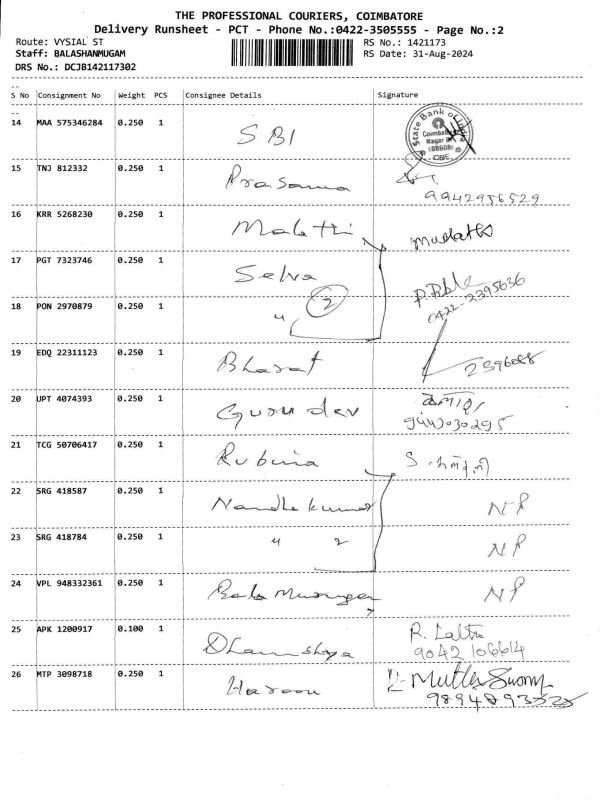 THE PROFESSIONAL COURIERS, COIMBATORE
Delivery Runsheet - PCT - Phone No.:0422-3505555 - Page No.:2
Route: VYSIAL ST RS No.: 1421173
Staff: BALASHANMUGAM RS Date: 31-Aug-2024
DRS No.: DCJB142117302
S No Consignment No Weight PCS Consignee Details Signature
14 MAA 575346284 0.250 1 SBI State Bank of India Coimbatore Nagar CBE
15 TNJ 812332 0.250 1 Prasanna
9942956529
16 KRR 5268230 0.250 1 Malathi
17 PGT 7323746 0.250 1 Selva
0422-2395636
18 PON 2970879 0.250 1 " 2
19 EDQ 22311123 0.250 1 Bharat 2396088
20 UPT 4074393 0.250 1 Gurudev
21 TCG 50706417 0.250 1 Rubina
22 SRG 418587 0.250 1 Nandhakumar NP
23 SRG 418784 0.250 1 " 2 NP
24 VPL 948332361 0.250 1 Bala Murugan NP
25 APK 1200917 0.100 1 R. Lalta
9042106614
26 MTP 3098718 0.250 1 Haroon